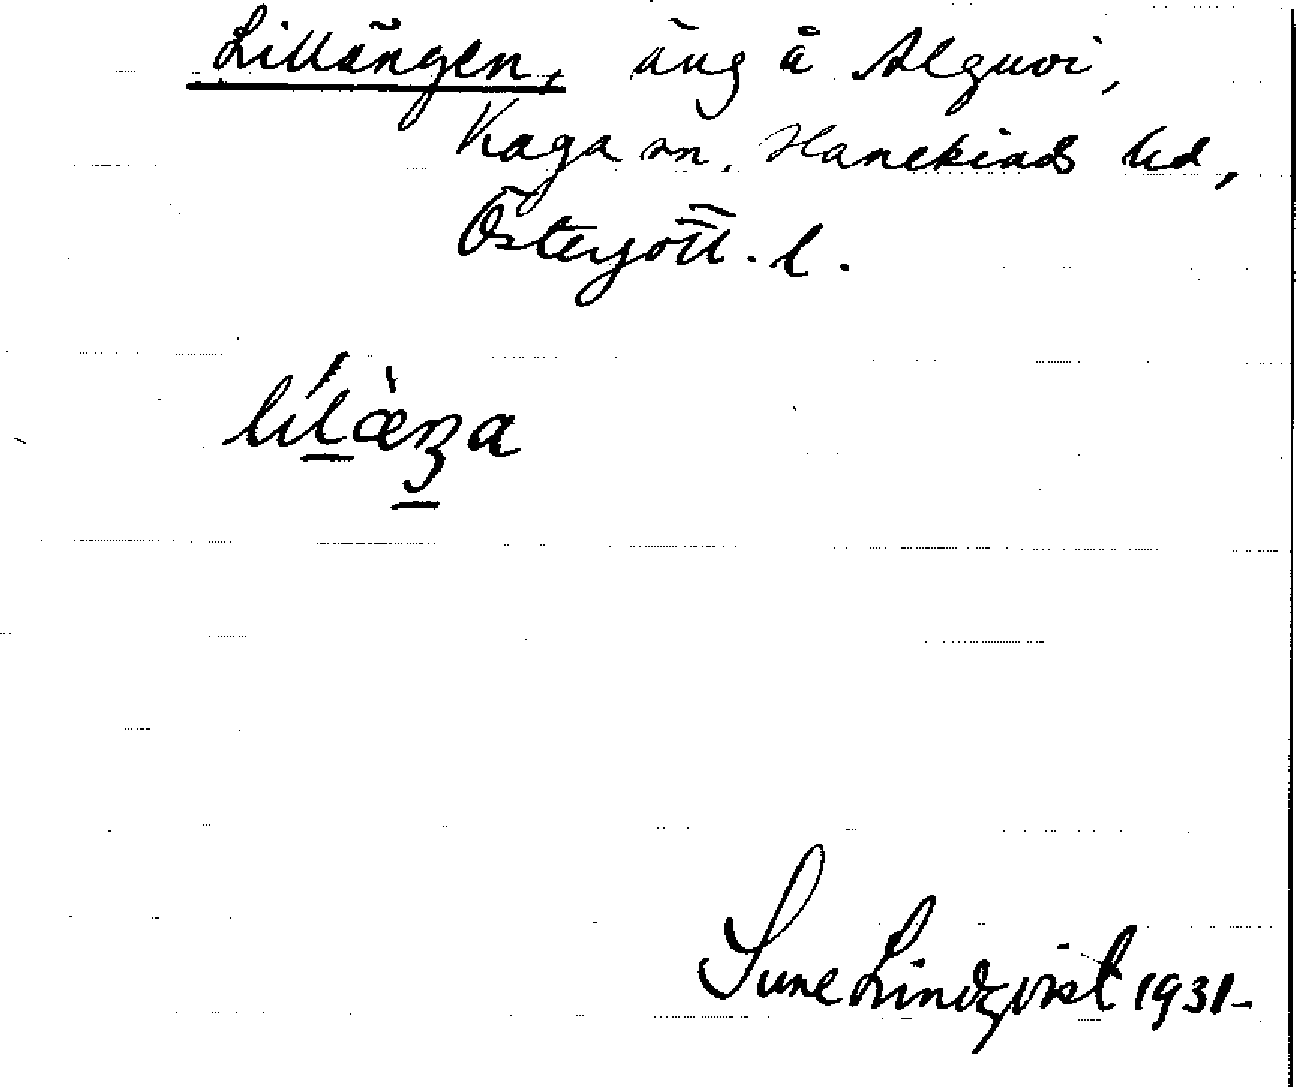 Lillängen, äng å Alguvi,
Kaga sn. Hanekinds hd,
Östergötl. l.
lílæ̀ŋa
Sune Lindqvist 1931